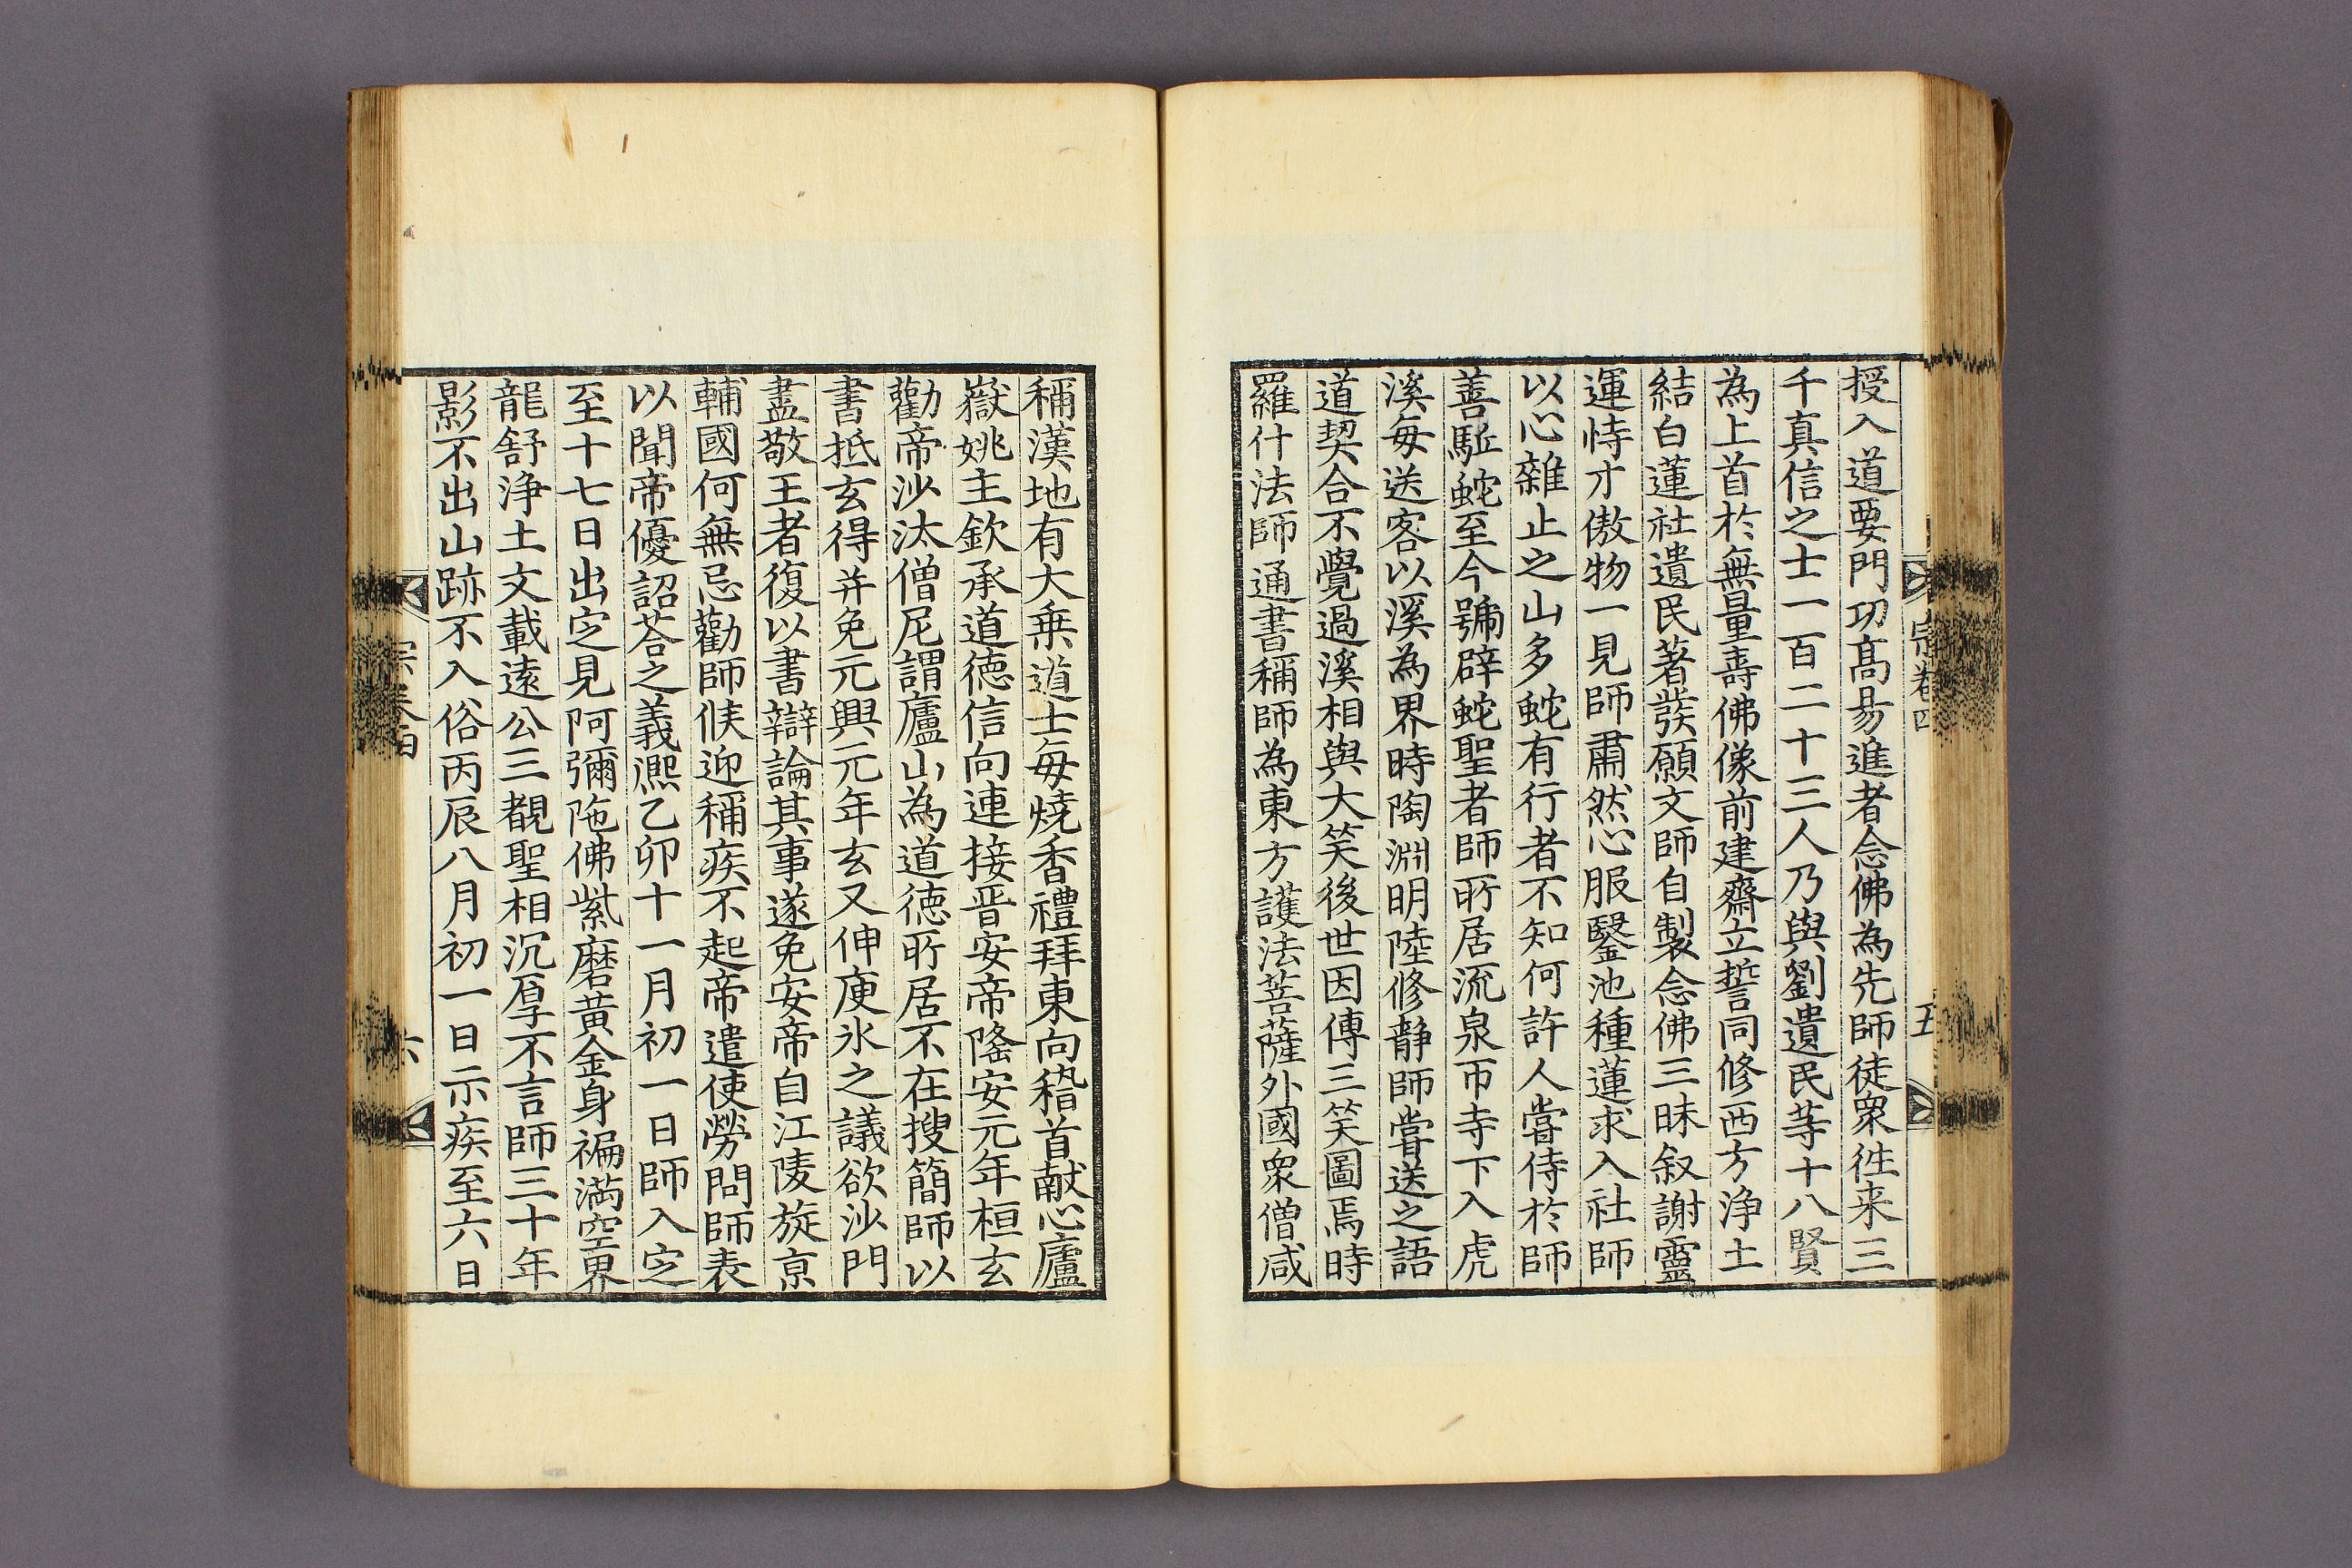 授入道要門功高易進者念佛為先師徒衆徃来三
千真信之士一百二十三人乃與劉遺民等十八賢
為上首於無量壽佛像前建齋立誓同修西方淨土
結白蓮社遺民著發願文師自製念佛三昧叙謝靈
運恃才傲物一見師肅然心服鑿池種蓮求入社師
以心雜止之山多蛇有行者不知何許人嘗侍於師
善駈蛇至今號辟蛇聖者師所居流泉帀寺下入虎
溪每送客以溪為界時陶淵明陸修靜師嘗送之語
道契合不覺過溪相與大笑後世因傳三笑圖焉時
羅什法師通書稱師為東方護法菩薩外國衆僧咸
宗卷四
五
稱漢地有大乗道士每燒香禮拜東向稽首献心廬
嶽姚主欽承道徳信向連接晋安帝隆安元年桓玄
勸帝沙汰僧尼謂廬山為道徳所居不在搜簡師以
書抵玄得并免元興元年玄又伸庾氷之議欲沙門
盡敬王者復以書辯論其事遂免安帝自江陵旋京
輔國何無忌勸師候迎稱疾不起帝遣使勞問師表
以聞帝優詔荅之義凞乙卯十一月初一日師入定
至十七日出定見阿彌陁佛紫磨黄金身徧満空界
龍舒淨土文載逺公三覩聖相沉厚不言師三十年
影不出山跡不入俗丙辰八月初一日示疾至六日
六